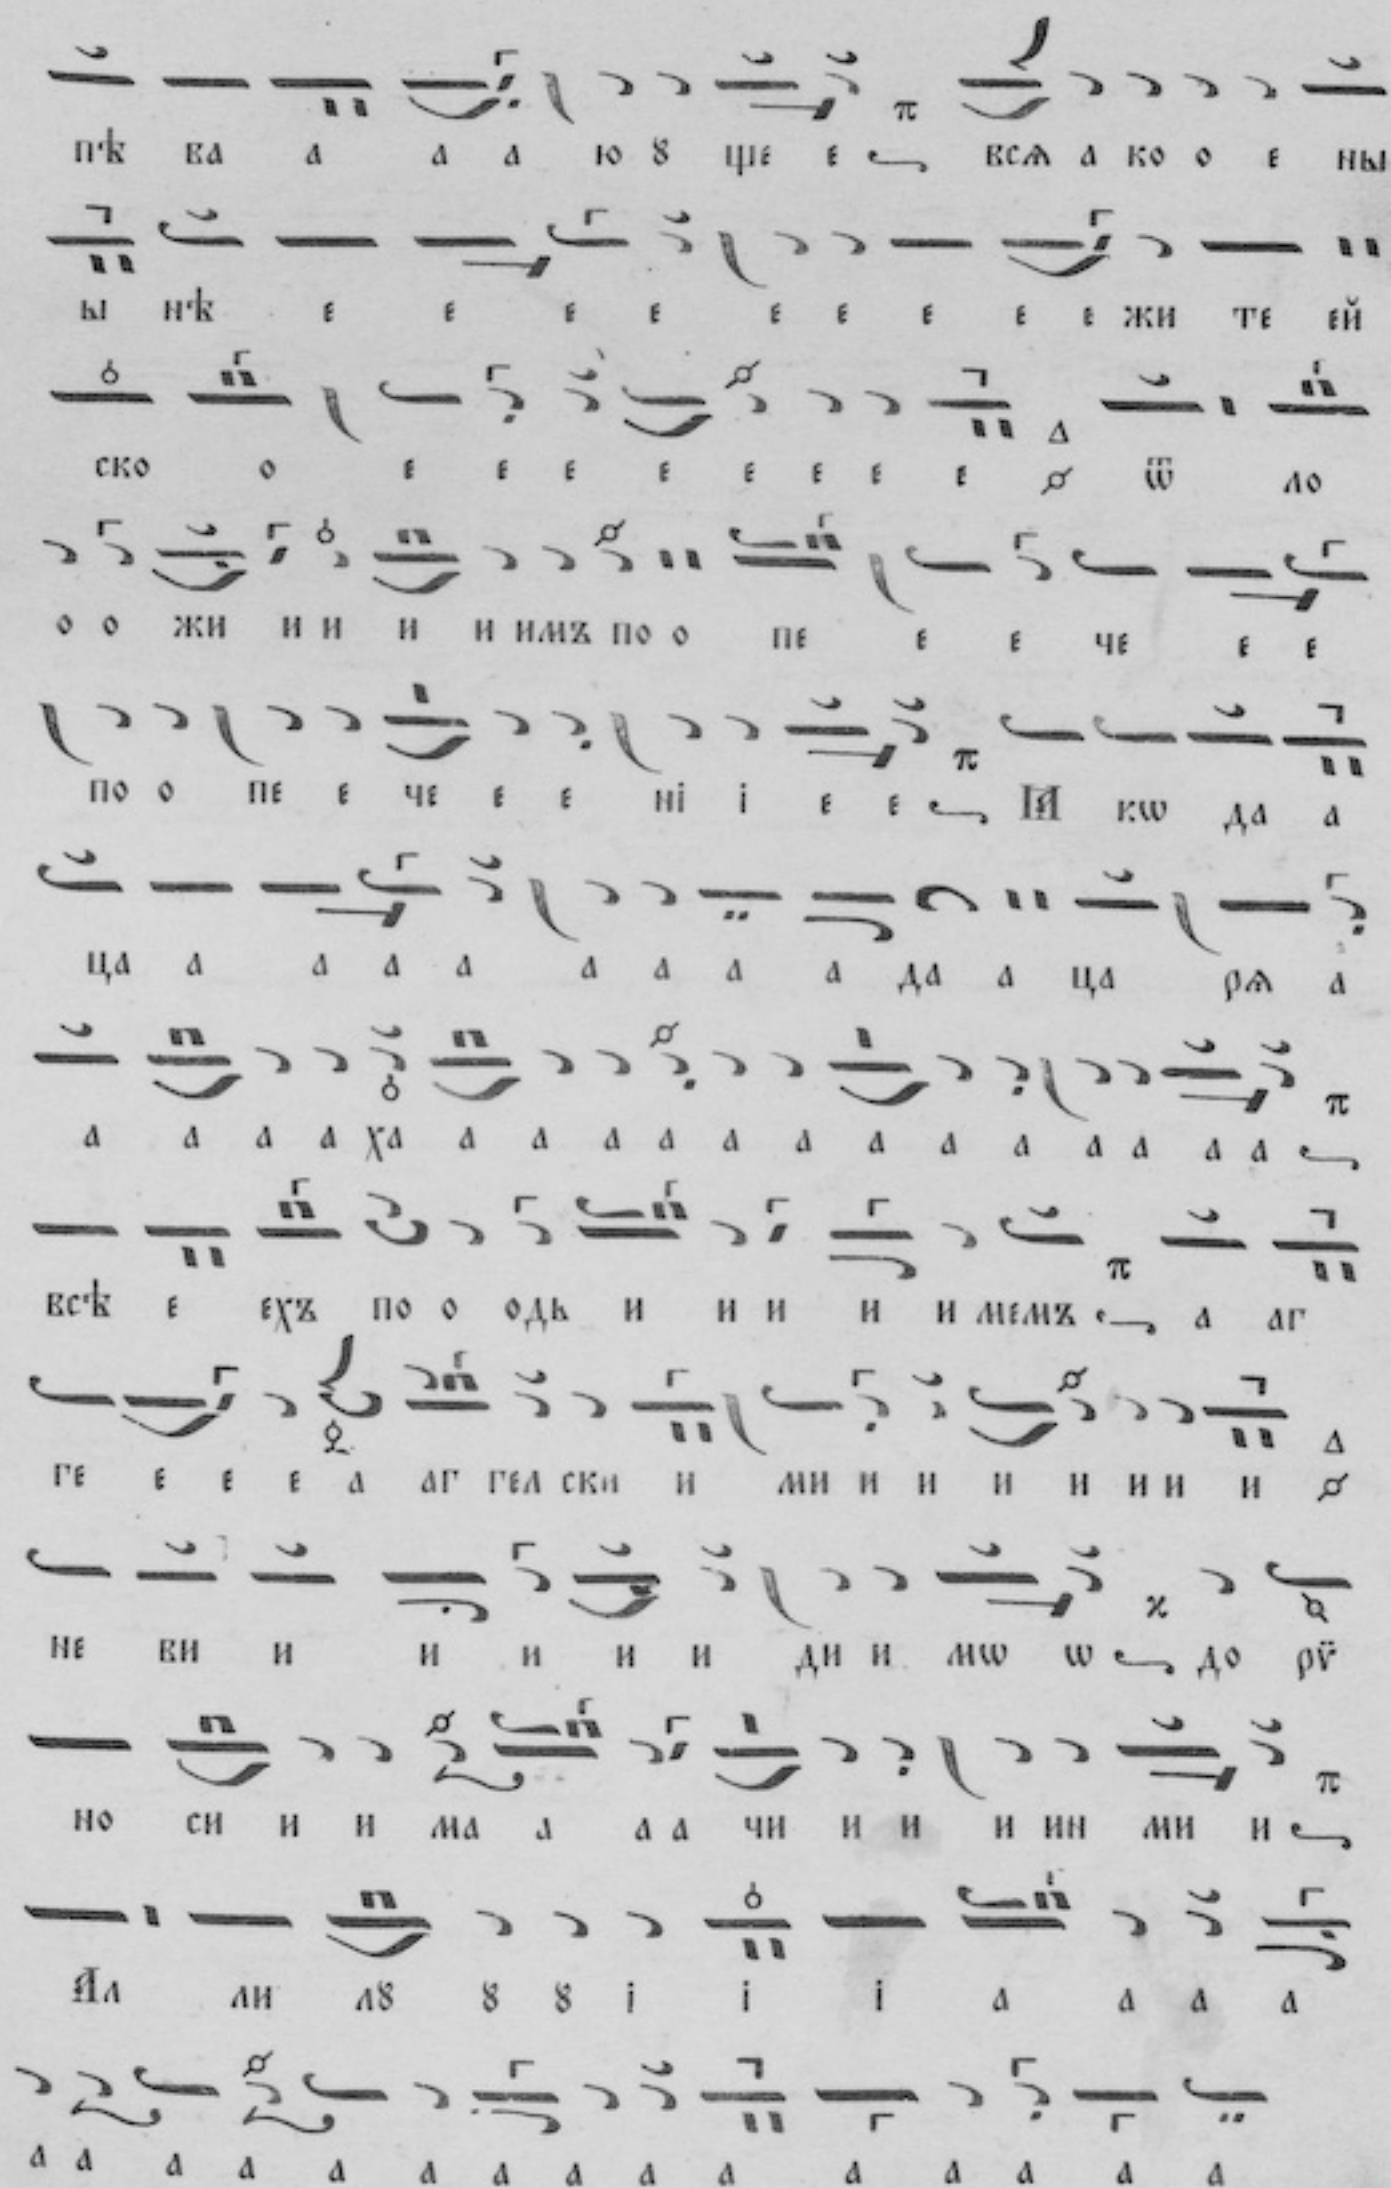 пѣ ва а а а ю ꙋ ще е всѧ а ко о е ны
ы нѣ е е е е е е е е е жи те ей
ско о е е е е е е е е ѿ ло
о о жи и и и и имъ по о пе е е че е е
по о пе е че е е ні і е е Ꙗ кѡ да а
ца а а а а а а а а да а ца рѧ а
а а а а ха а а а а а а а а а а а а а
всѣ е ехъ по о одь и и и и и мемъ а аг
ге е е е а аг гел ски и ми и и и и и и и
не ви и и и и и ди и мѡ ѡ до рѷ
но си и и ма а а а чи и и и ин ми и
Ал ли лꙋ ꙋ ꙋ і і і а а а а
а а а а а а а а а а а а а а а